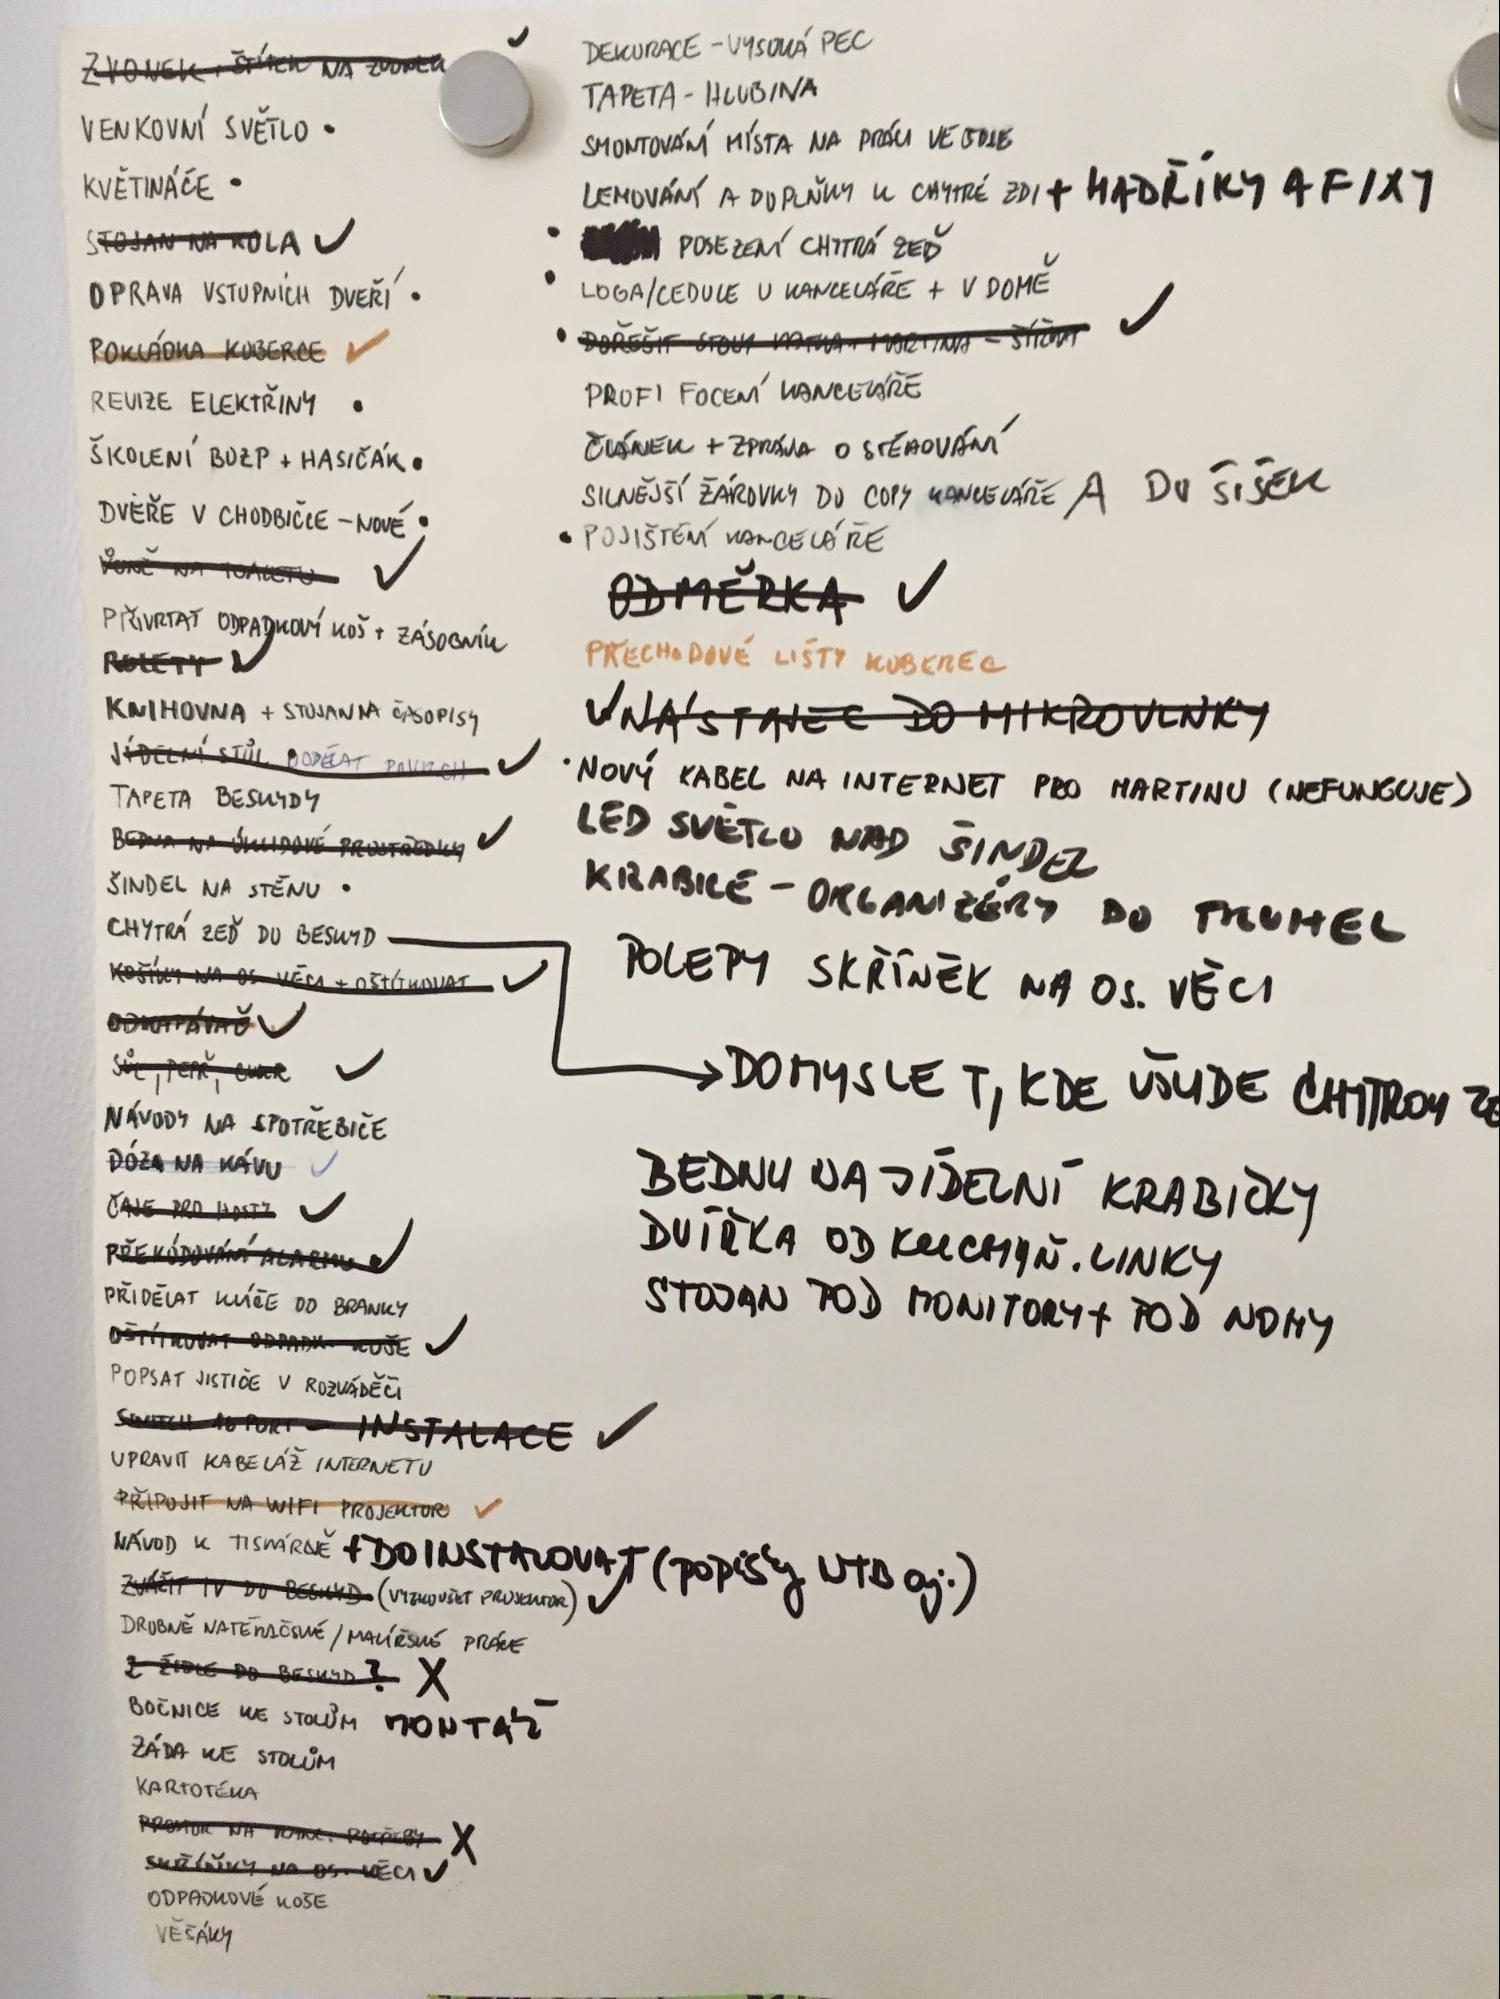 ZVONEK + ŠTÍTEK NA ZVONEK
VENKOVNÍ SVĚTLO •
KVĚTINÁČE •
STOJAN NA KOLA ✓
OPRAVA VSTUPNÍCH DVEŘÍ •
POKLÁDKA KOBERCE ✓
REVIZE ELEKTŘINY •
ŠKOLENÍ BOZP + HASIČÁK •
DVEŘE V CHODBIČCE – NOVÉ •
VŮNĚ NA TOALETU ✓
PŘIVRTAT ODPADKOVÝ KOŠ + ZÁSOBNÍK
ROLETY ✓
KNIHOVNA + STOJAN NA ČASOPISY
JÍDELNÍ STŮL DODĚLAT POVRCH ✓
TAPETA BESKYDY
BEDNA NA ÚKLIDOVÉ PROSTŘEDKY ✓
ŠINDEL NA STĚNU •
CHYTRÁ ZEĎ DO BESKYD
KOŠÍKY NA OS. VĚCI + OŠTÍTKOVAT ✓
ODKAPÁVAČ ✓
SŮL, PEPŘ, CUKR ✓
NÁVODY NA SPOTŘEBIČE
DÓZA NA KÁVU ✓
ČAJE PRO HOSTY ✓
PŘEKÓDOVÁNÍ ALARMU ✓
PŘIDĚLAT KLÍČE OD BRANKY
OŠTÍTKOVAT ODPADK. KOŠE ✓
POPSAT JISTIČE V ROZVÁDĚČI
SWITCH 16 PORT – INSTALACE ✓
UPRAVIT KABELÁŽ INTERNETU
PŘIPOJIT NA WIFI PROJEKTOR ✓
NÁVOD K TISKÁRNĚ + DOINSTALOVAT (popisky NTB aj.)
ZVÁŽIT TV DO BESKYD (VYZKOUŠET PROJEKTOR) ✓
DROBNÉ NATĚRAČSKÉ / MALÍŘSKÉ PRÁCE
2 ŽIDLE DO BESKYD ? X
BOČNICE KE STOLŮM MONTÁŽ
ZÁDA KE STOLŮM
KARTOTÉKA
PROSTOR NA KANC. POTŘEBY X
SKŘÍŇKY NA OS. VĚCI ✓
ODPADKOVÉ KOŠE
VĚŠÁKY
✓ DEKORACE – VYSOKÁ PEC
TAPETA – HLUBINA
SMONTOVÁNÍ MÍSTA NA PRÁCI VE
LEMOVÁNÍ A DOPLŇKY K CHYTRÉ ZDI + HADŘÍKY A FIXY
• POSEZENÍ CHYTRÁ ZEĎ
• LOGA/CEDULE U KANCELÁŘE + V DOMĚ
• DOŘEŠIT STOLY MARTINA – ✓
PROFI FOCENÍ KANCELÁŘE
ČLÁNEK + ZPRÁVA O STĚHOVÁNÍ
SILNĚJŠÍ ŽÁROVKY DO COPY KANCELÁŘE A DO ŠIŠEK
• POJIŠTĚNÍ KANCELÁŘE
ODMĚRKA ✓
PŘECHODOVÉ LIŠTY KOBEREC
✓ NÁSTAVEC DO MIKROVLNKY
• NOVÝ KABEL NA INTERNET PRO MARTINU (NEFUNGUJE)
LED SVĚTLO NAD ŠINDEL
KRABICE – ORGANIZÉRY DO TRUHEL
POLEPY SKŘÍNĚK NA OS. VĚCI
DOMYSLET, KDE VŠUDE CHYTROU ZE
BEDNU NA JÍDELNÍ KRABIČKY
DVÍŘKA OD KUCHYŇ. LINKY
STOJAN POD MONITORY + POD NOHY